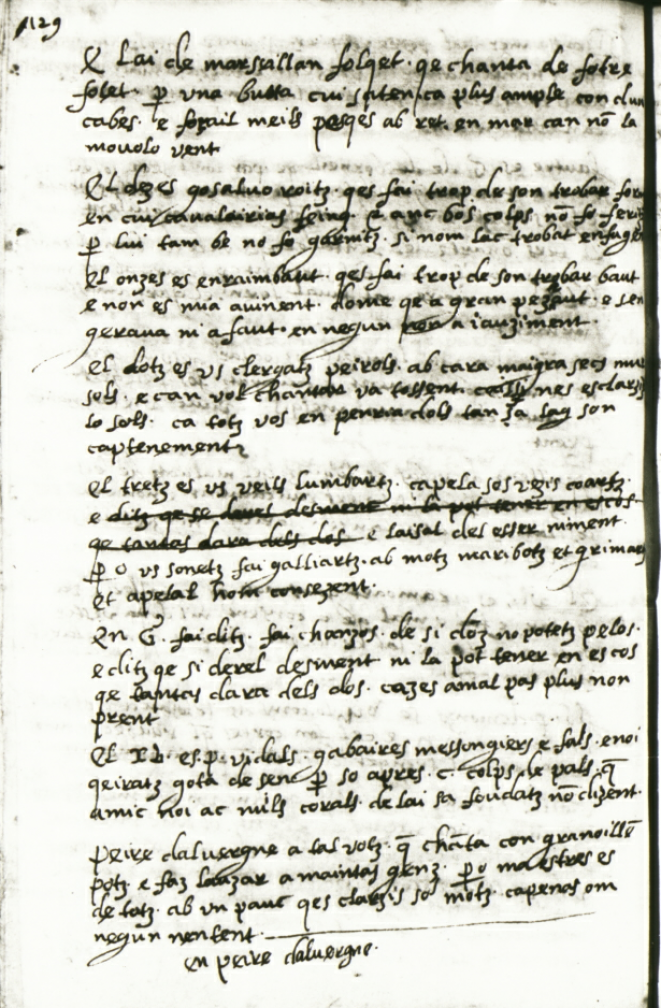 129
E lai de marseillan folqet · qe chanta de fotre
folet · p una butta cui saten ca plus ample con
cabes · e forail meils pesqes ab ret · en mar can nō la
mouolo vent
El dezes gosaluo roitz · qes fai trop de son trobar
en cui cavalairias feing · e anc bos colps nō fo
p lui tam be no fo garnitz · si nom lac trobat
El onzes es enraimbaut · qes fai trop de son trobar baut
e non es mia avinent · dome qe a gran · e
ni a faut · en negun a iauziment ·
El dotz es us clergatz peirols · ab cara maigra secs
sols · e can vol chantar va tossent · nes
lo sols · ca totz vos en penria dols tan son
captenementz
El tretz es us veils lumbartz · capela sos vezis coartz ·
e ditz qe se desment ni la pot tener en escos
qe tantas dara dels dos e laisal des esser niment
p o us sonetz fai galliartz · ab motz maribotz et
et apelal hom cosezent ·
En G · faiditz · fai chanzos · de si donz no potetz pelos ·
e ditz qe si derel desment ni la pot tener en escos
qe tantas dara dels dos · cazes amal pas plus non
prent
El es · p · vidals · gabaires messongiers e fals · enoi
qeiratz gota de sen p so apres · c · colps de pals · q̄
amic noi ac nuils corals · de lai sa foudatz nō dizent ·
Peire daluergne a tal votz · q̄ chāta con granoille
potz · e faz lauzar a maintas genz · po maestres es
de totz · ab un pauc qes clarzis sos motz · capenas om
negun nentent ·
en peire daluergne ·